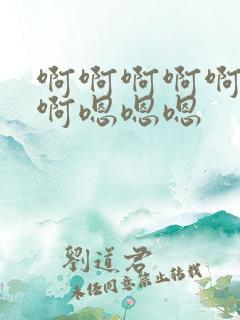 啊啊啊啊啊
啊嗯嗯嗯
劉道君
未经同意禁止转载